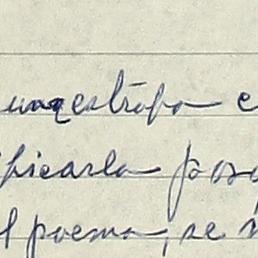 una estrofa e
ficarla pos
l poema, se